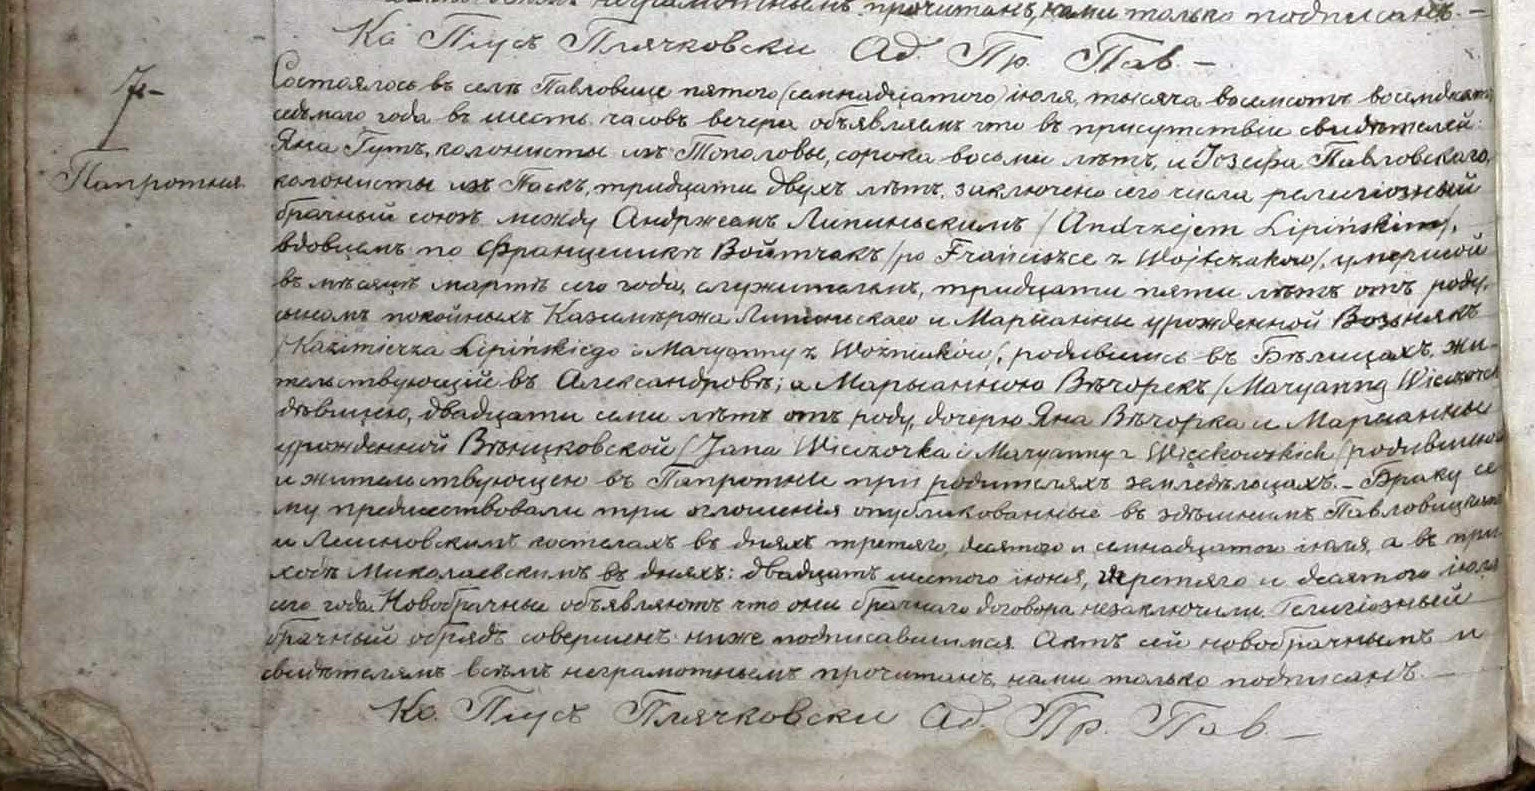 неграмотнымъ прочитанъ, нами только подписанъ. —
Кс Піусъ Плячковски Ад. Пр. Пав. —
7-
Папротня.
Состоялось въ селѣ Павловице пятого (семнадцатого) іюля, тысяча восемсотъ восемдесятъ
седьмаго года въ шесть часовъ вечера объявляемъ что въ присутствіи свидѣтелей:
Яна Гутъ, колонисты изъ Тополовы, сорока восьми лѣтъ, и Іозефа Павловскаго,
колонисты изъ Паскъ, тридцати двухъ лѣтъ, заключено сего числа религіозный
брачный союзъ между Андржеемъ Липиньскимъ /Andrzejem Lipińskim/,
вдовцемъ по Францишкѣ Войтчакъ /po Franciszce z Wojtczaków/, умершой
въ мѣсяцѣ мартѣ сего года, служителемъ, тридцати пяти лѣтъ отъ роду,
сыномъ покойныхъ Казимѣржа Липиньскаго и Марыанны урожденной Возьнякъ
/Kazimierza Lipińskiego i Maryanny z Woźniaków/, родившись въ Бѣлицахъ, жи-
тельствующій въ Александровѣ; а Марыанною Вѣчорекъ /Maryanną Wieczorek
дѣвицею, двадцати семи лѣтъ отъ роду, дочерю Яна Вѣчорка и Марыанны
урожденной Вѣнцковской /Jana Wieczorka i Maryanny z Więckowskich/ родившеюся
и жительствующею въ Папротни при родителяхъ земледѣльцахъ. — Браку се
му предшествовали три оглошенія опубликованные въ здѣшнимъ Павловицкимъ
и Лешновскимъ костелахъ въ дняхъ третяго, десятого и семнадцатого іюля, а въ при-
ходѣ Миколаевскимъ въ дняхъ: двадцать шестого іюня, третяго и десятого іюля
сего года. Новобрачные объявляютъ что они брачнаго договора незаключили. Религіозный
брачный обрядъ совершенъ ниже подписавшимся. Актъ сей новобрачнымъ и
свидѣтелямъ всѣмъ неграмотнымъ прочитанъ, нами только подписанъ. —
Кс. Піусъ Плячковски Ад. Пр. Пав. —